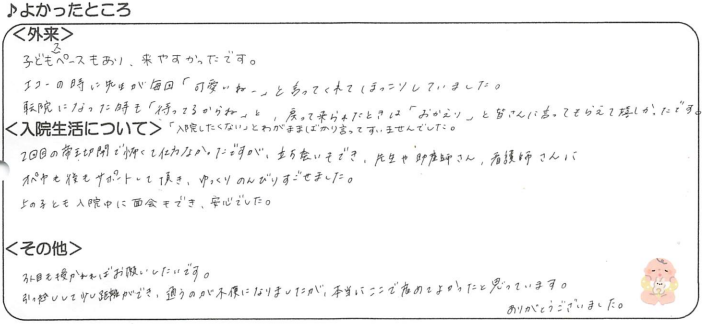 ♪よかったところ
＜外来＞
子どもスペースもあり、来やすかったです。
エコーの時に先生が毎回「可愛いねー」と言ってくれてほっこりしていました。
転院になった時も「待ってるからね」と、戻って来られたときは「おかえり」と皆さんに言ってもらえて嬉しかったです。
＜入院生活について＞「入院したくない」とわがままばかり言ってすいませんでした。
2回目の帝王切開で怖くて仕方なかったですが、立ち会いもでき、先生や助産師さん、看護師さんに
オペ中も後もサポートして頂き、ゆっくりのんびりすごせました。
上の子とも入院中に面会もでき、安心でした。
＜その他＞
3人目も授かればお願いしたいです。
引っ越しして少し距離ができ、通うのが不便になりましたが、本当にここで産めてよかったと思っています。
ありがとうございました。